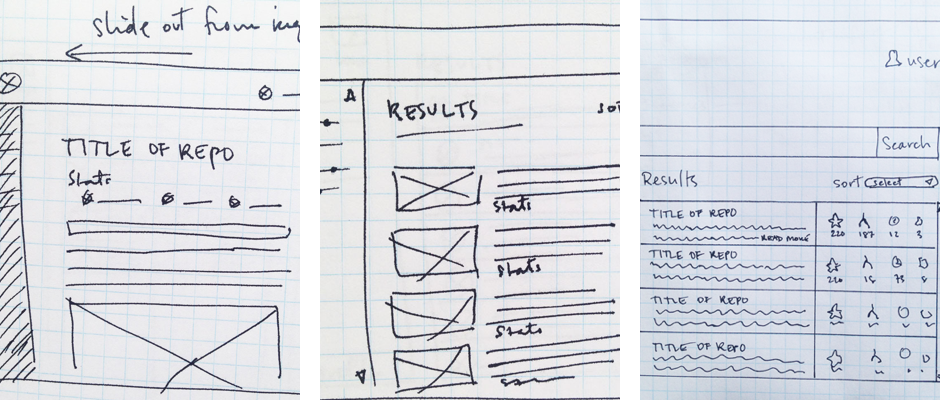 slide out from
TITLE OF REPO
Stats
RESULTS
Stats
Stats
Stats
user
Search
Results
sort select
TITLE OF REPO
READ MORE
220 187 12 3
TITLE OF REPO
220 15 75 8
TITLE OF REPO
TITLE OF REPO